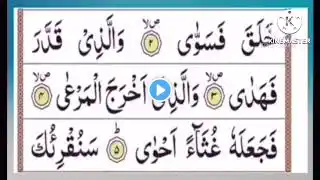 خَلَقَ فَسَوّٰی ۪ۙ﴿۲﴾ وَالَّذِیۡ قَدَّرَ
فَهَدٰی ۪ۙ﴿۳﴾ وَالَّذِیۡۤ اَخۡرَجَ الۡمَرۡعٰی ۪ۙ﴿۴﴾
فَجَعَلَهٗ غُثَآءً اَحۡوٰی ؕ﴿۵﴾ سَنُقۡرِئُكَ
KINEMASTER